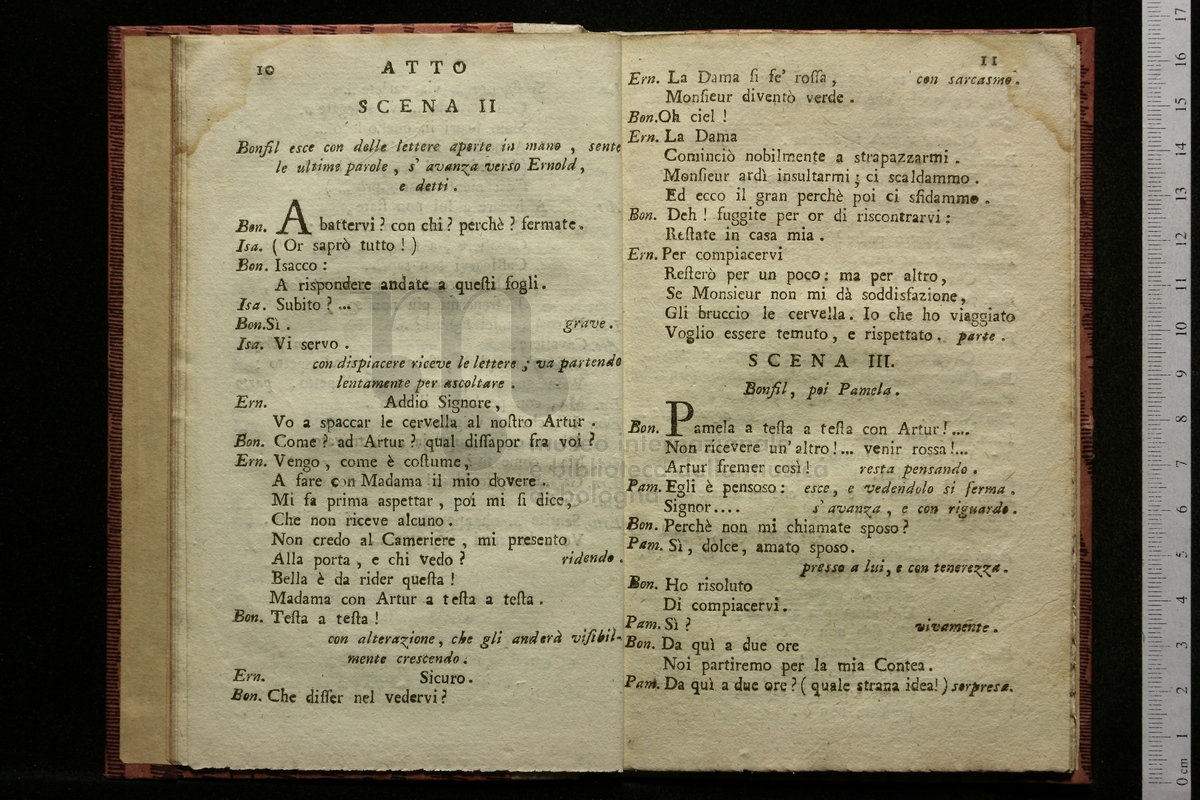 10 ATTO
SCENA II
Bonfil esce con delle lettere aperte in mano , sente
le ultime parole , s' avanza verso Ernold ,
e detti .
Bon. A battervi ? con chi ? perchè ? fermate .
Isa. ( Or saprò tutto ! )
Bon. Isacco :
A rispondere andate a queſti fogli .
Isa. Subito ? ...
Bon. Sì . grave .
Isa. Vi servo .
con dispiacere riceve le lettere ; va partendo
lentamente per ascoltare .
Ern. Addio Signore ,
Vo a spaccar le cervella al noſtro Artur .
Bon. Come ? ad Artur ? qual diſſapor fra voi ?
Ern. Vengo , come è coſtume ,
A fare con Madama il mio dovere .
Mi fa prima aspettar , poi mi ſi dice ,
Che non riceve alcuno .
Non credo al Cameriere , mi presento
Alla porta , e chi vedo ? ridendo .
Bella è da rider queſta !
Madama con Artur a teſta a teſta .
Bon. Teſta a teſta !
con alterazione , che gli anderà viſibil-
mente crescendo .
Ern. Sicuro .
Bon. Che diſſer nel vedervi ?
11
Ern. La Dama ſi fe' roſſa , con sarcasmo .
Monſieur diventò verde .
Bon. Oh ciel !
Ern. La Dama
Cominciò nobilmente a strapazzarmi .
Monſieur ardì insultarmi ; ci scaldammo .
Ed ecco il gran perchè poi ci sfidammo .
Bon. Deh ! fuggite per or di riscontrarvi :
Reſtate in casa mia .
Ern. Per compiacervi
Reſterò per un poco : ma per altro ,
Se Monsieur non mi dà soddisfazione ,
Gli bruccio le cervella . Io che ho viaggiato
Voglio essere temuto , e rispettato . parte .
SCENA III.
Bonfil , poi Pamela .
Bon. Pamela a teſta a teſta con Artur ! ....
Non ricevere un' altro ! ... venir rossa ! ...
Artur fremer così ! resta pensando .
Pam. Egli è pensoso : esce , e vedendolo si ferma .
Signor .... s' avanza , e con riguardo .
Bon. Perchè non mi chiamate sposo ?
Pam. Sì , dolce , amato sposo .
presso a lui , e con tenerezza .
Bon. Ho risoluto
Di compiacervi .
Pam. Sì ? vivamente .
Bon. Da quì a due ore
Noi partiremo per la mia Contea .
Pam. Da quì a due ore ? ( quale strana idea ! ) sorpresa .